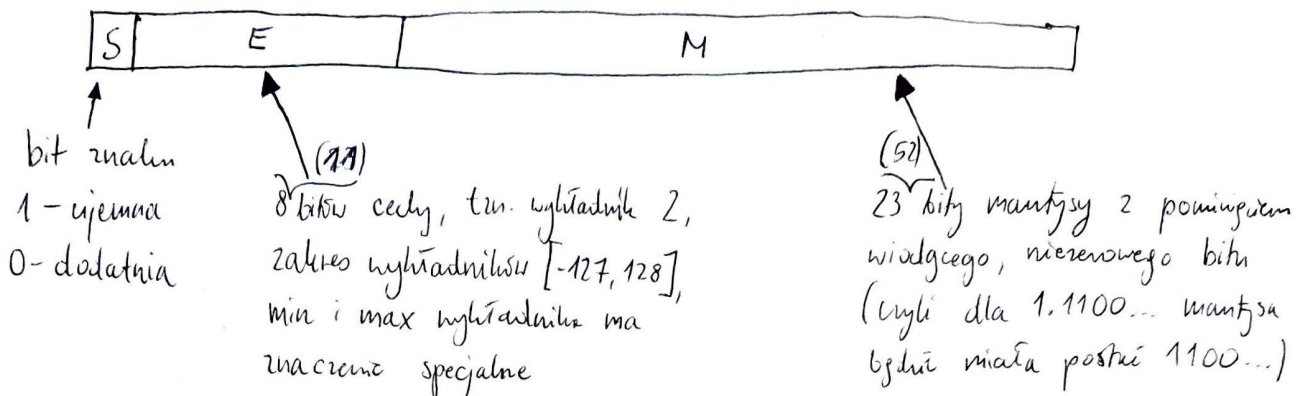 S E M
bit znaku
1 - ujemna
0 - dodatnia
(11)
8 bitów cechy, tzn. wykładnik 2,
zakres wykładników [-127, 128],
min i max wykładnika ma
znaczenie specjalne
(52)
23 bity mantysy z pominięciem
wiodącego, niezerowego bitu
(czyli dla 1.1100... mantysa
będzie miała postać 1100...)